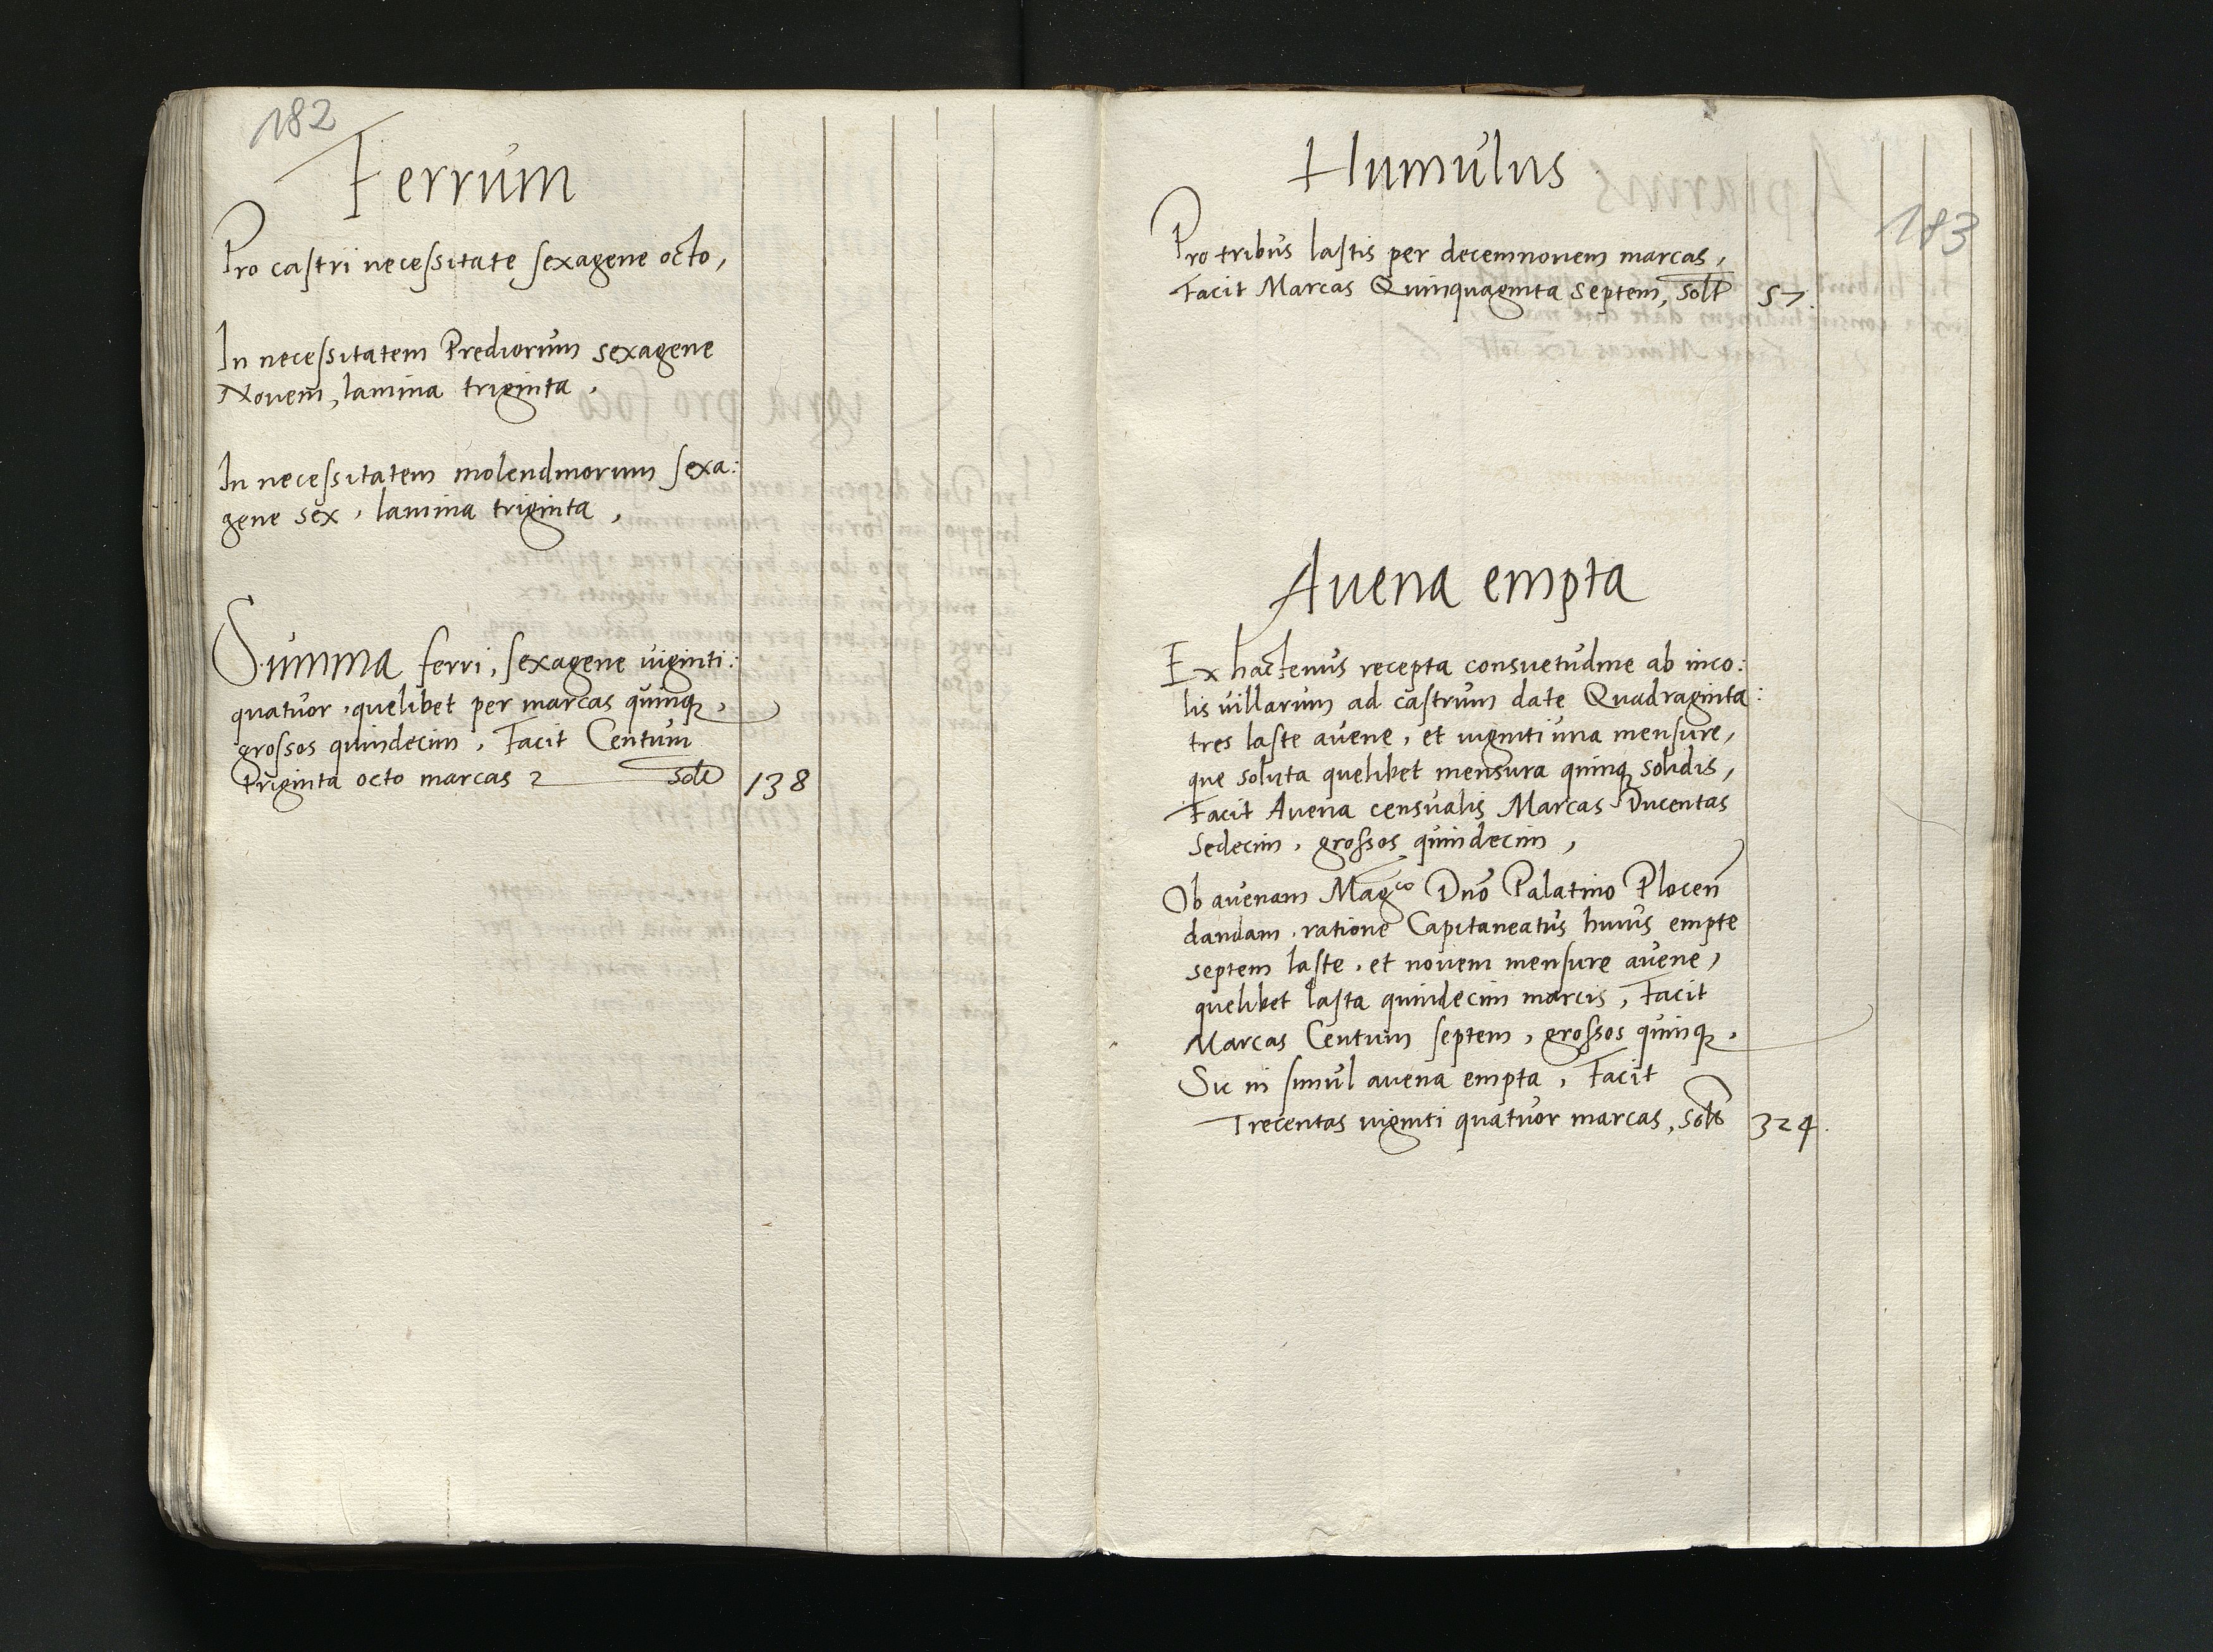 182
Ferrum
Pro castri necessitate sexagene octo,
In necessitatem Prediorum sexagene
Novem, lamina triginta.
In necessitatem molendinorum sexa:
gene sex, lamina triginta,
Summa ferri, sexagene viginti:
quatuor, quelibet per marcas quinqȝ,
grossos quindecim, Facit Centum
Triginta octo marcas 138
183
Humulus
Pro tribus lastis per decemnovem marcas,
Facit Marcas Quinquaginta septem, solt 57.
Avena empta
Ex hactenus recepta consuetudine ab inco:
lis villarum ad castrum date Quadraginta:
tres laste avene, et viginti una mensure,
que soluta quelibet mensura quinqȝ solidis,
Facit Avena censualis Marcas Ducentas
Sedecim, grossos quindecim,
Ob avenam Magco Dno Palatino Plocen
dandam, ratione Capitaneatus huius empte
septem laste, et novem mensure avene,
quelibet lasta quindecim marcis, Facit
Marcas Centum septem, grossos quinqȝ.
Sic in simul avena empta, Facit
Trecentas viginti quatuor marcas, 324.